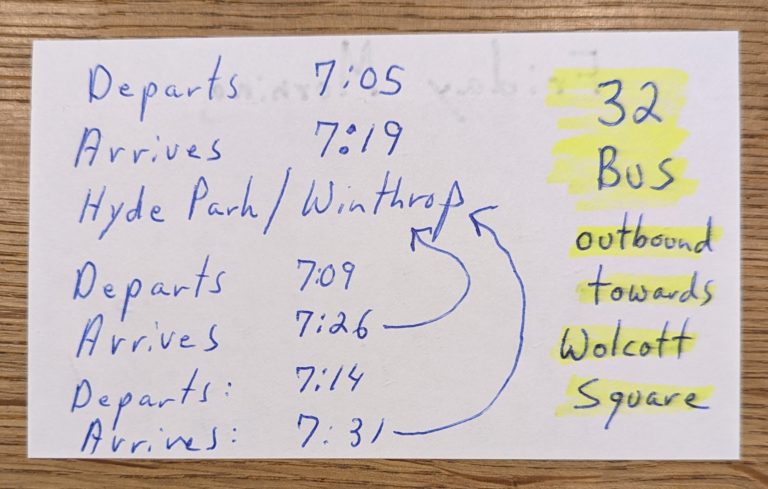 Departs 7:05
Arrives 7:19
Hyde Park/Winthrop
Departs 7:09
Arrives 7:26
Departs: 7:14
Arrives: 7:31
32
Bus
outbound
towards
Wolcott
Square
Friday Morning